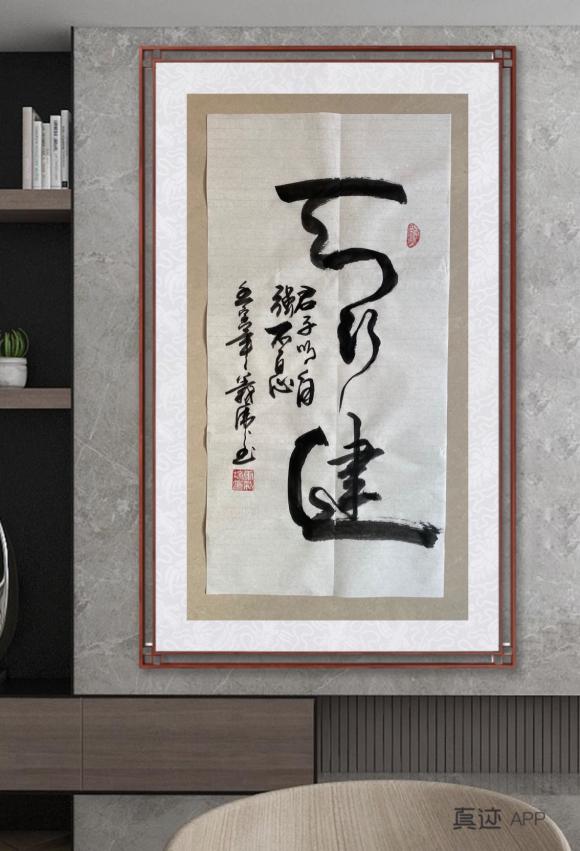 天行健
君子以自
强不息
壬寅年
真迹 APP